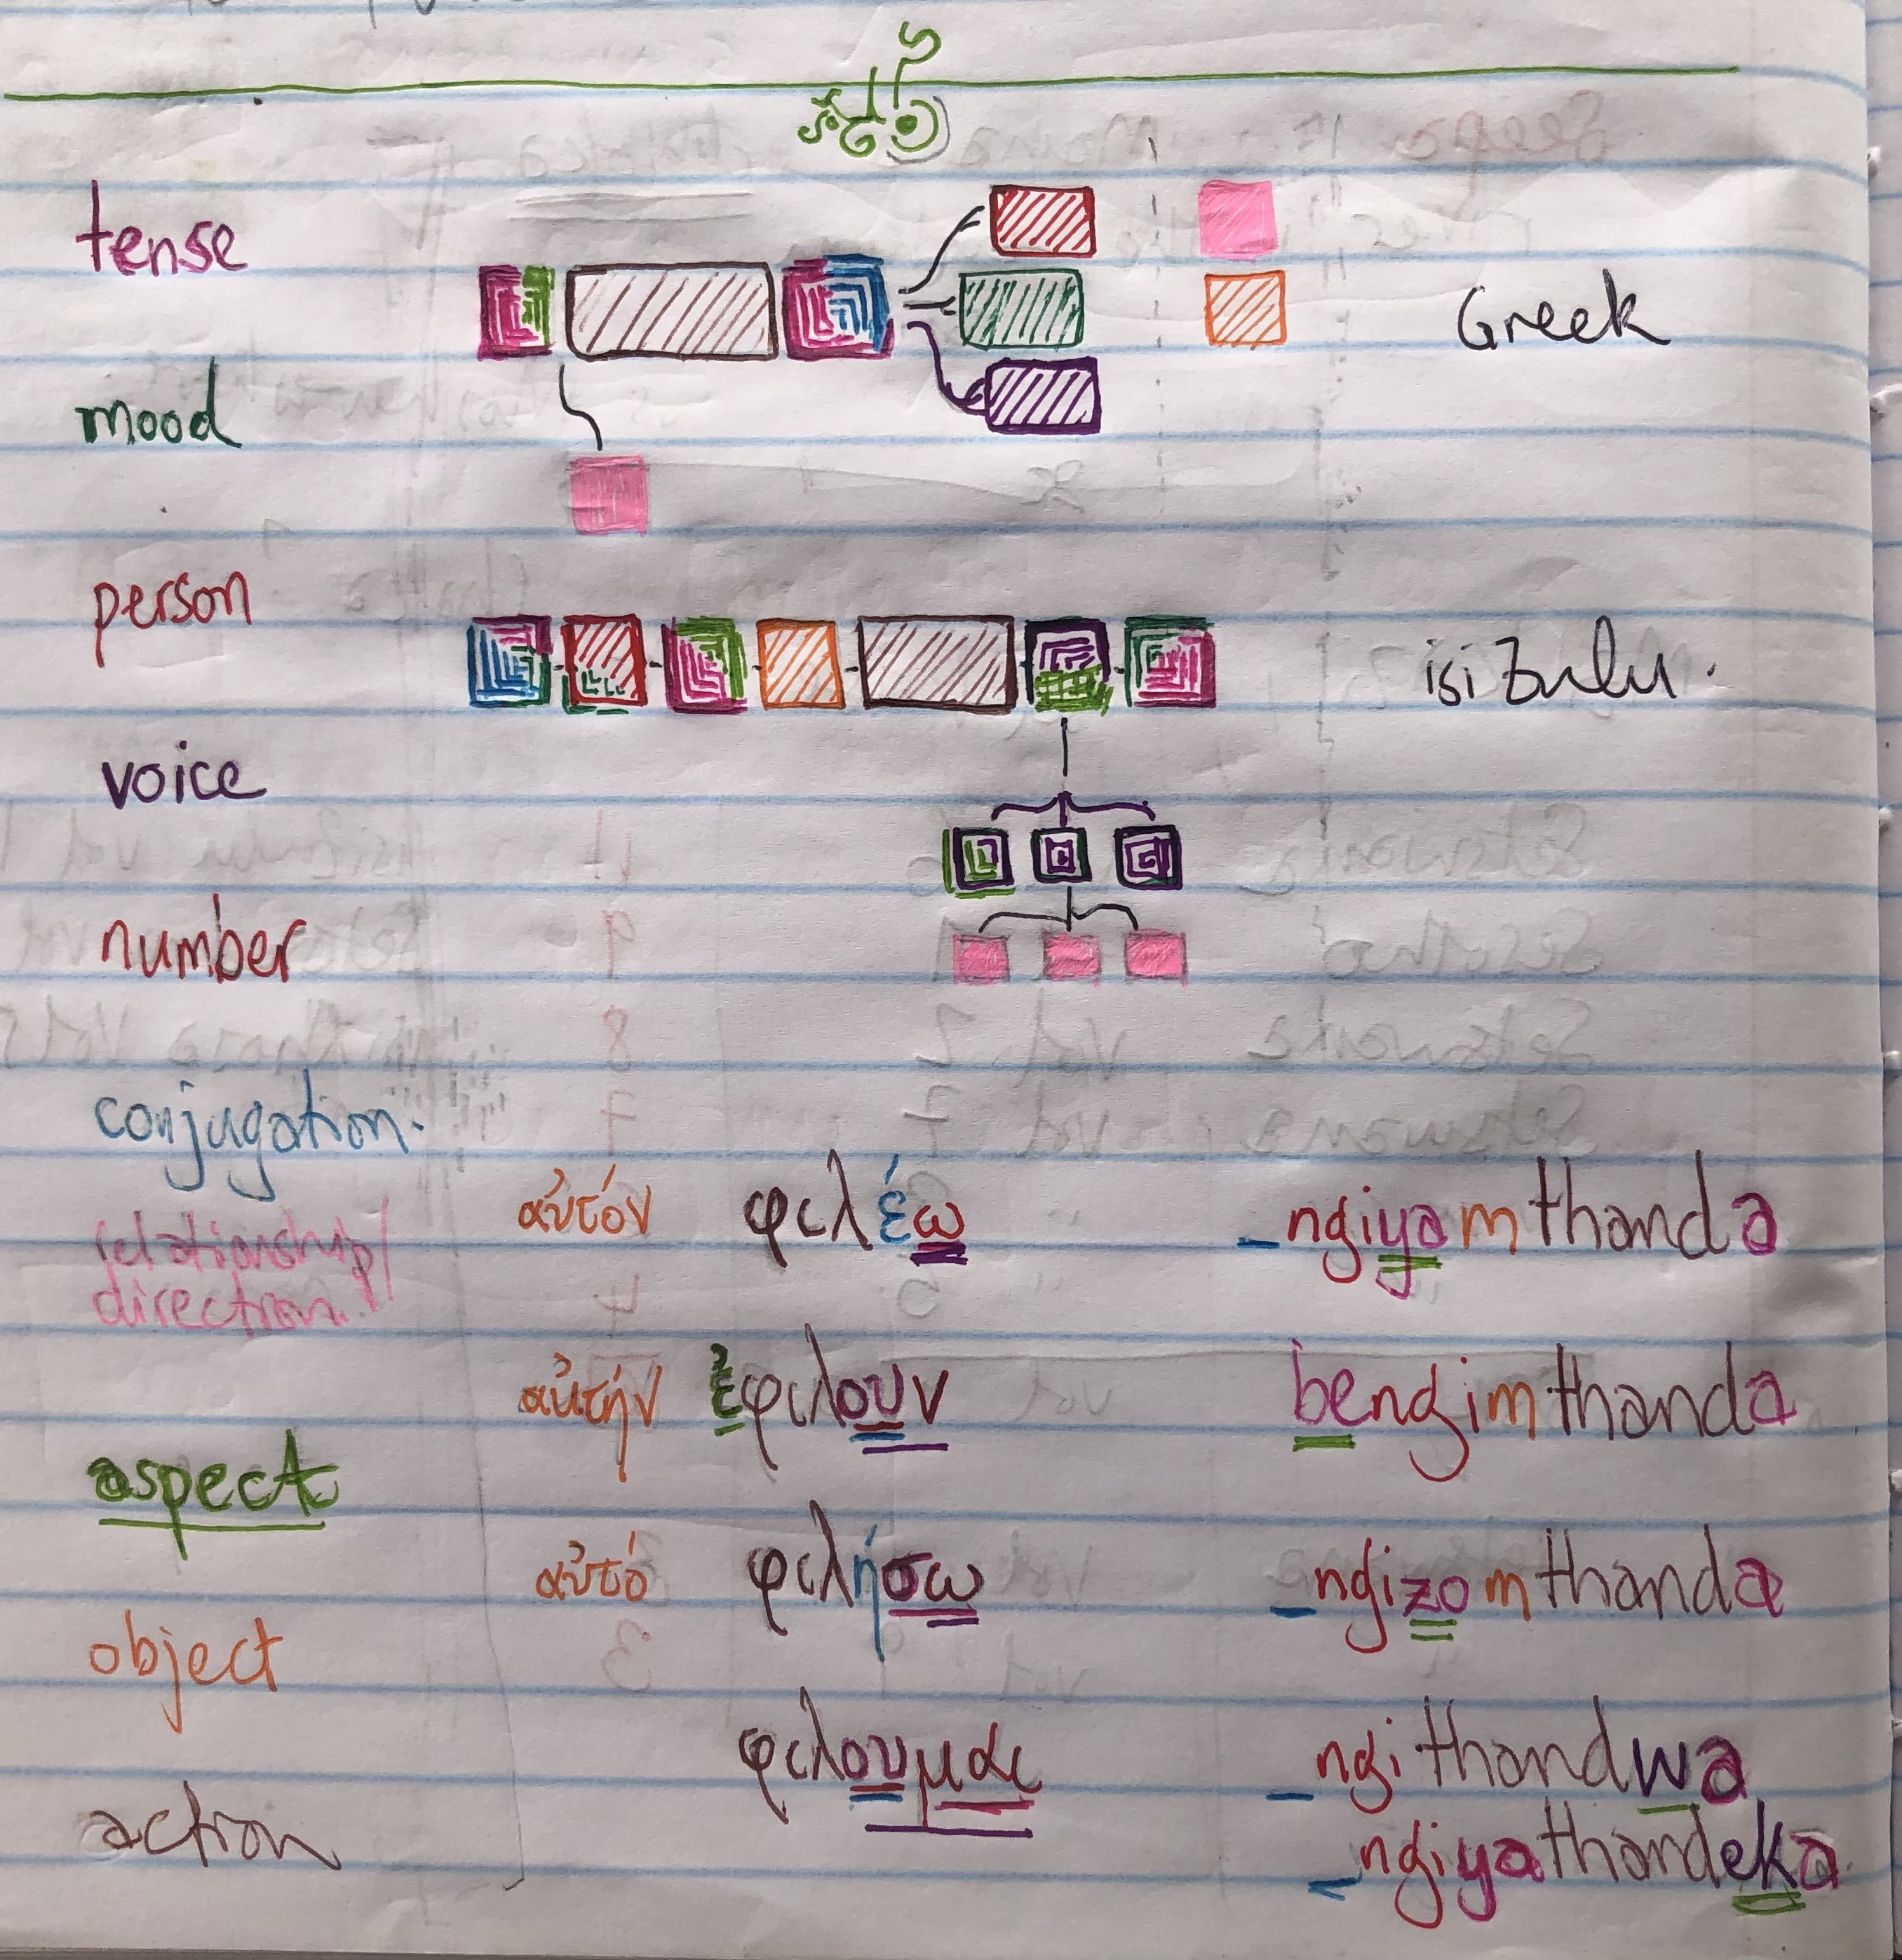 tense
Greek
mood
person
isiZulu.
voice
number
conjugation.
αὐτόν φιλέω _ngiyamthanda
relationship/
direction.
αὐτήν ἐφιλουν bengimthanda
aspect
αὐτό φιλήσω _ngizomthanda
object
φιλουμαι _ngithandwa
action _ngiyathandeka